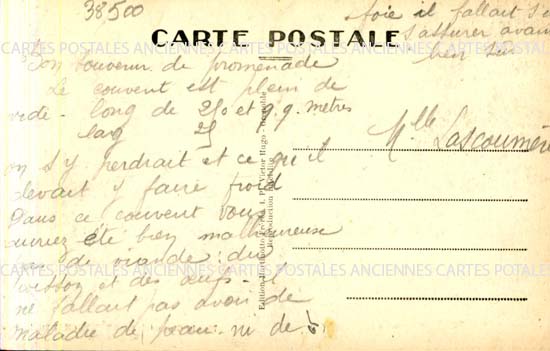 38500
CARTE POSTALE
Bon souvenir de promenade
Le couvent est plein de
vide - long de 250 et q.q. mètres
larg 25
on s'y perdrait et ce qu'il
devait y faire froid
Dans ce couvent vous
auriez été bien malheureuse
pas de viande : du
poisson et des œufs - il
ne fallait pas avoir de
maladie de peau - ni de
foie il fallait s'en
s'assurer avant
bien sûr
Mlle Lascoumère
Édition I. Pl. Victor Hugo - Grenoble
Reproduction interdite
CARTES POSTALES ANCIENNES CARTES POSTALES ANCIENNES CARTES POSTALES
CARTES POSTALES ANCIENNES CARTES POSTALES ANCIENNES CARTES POSTALES